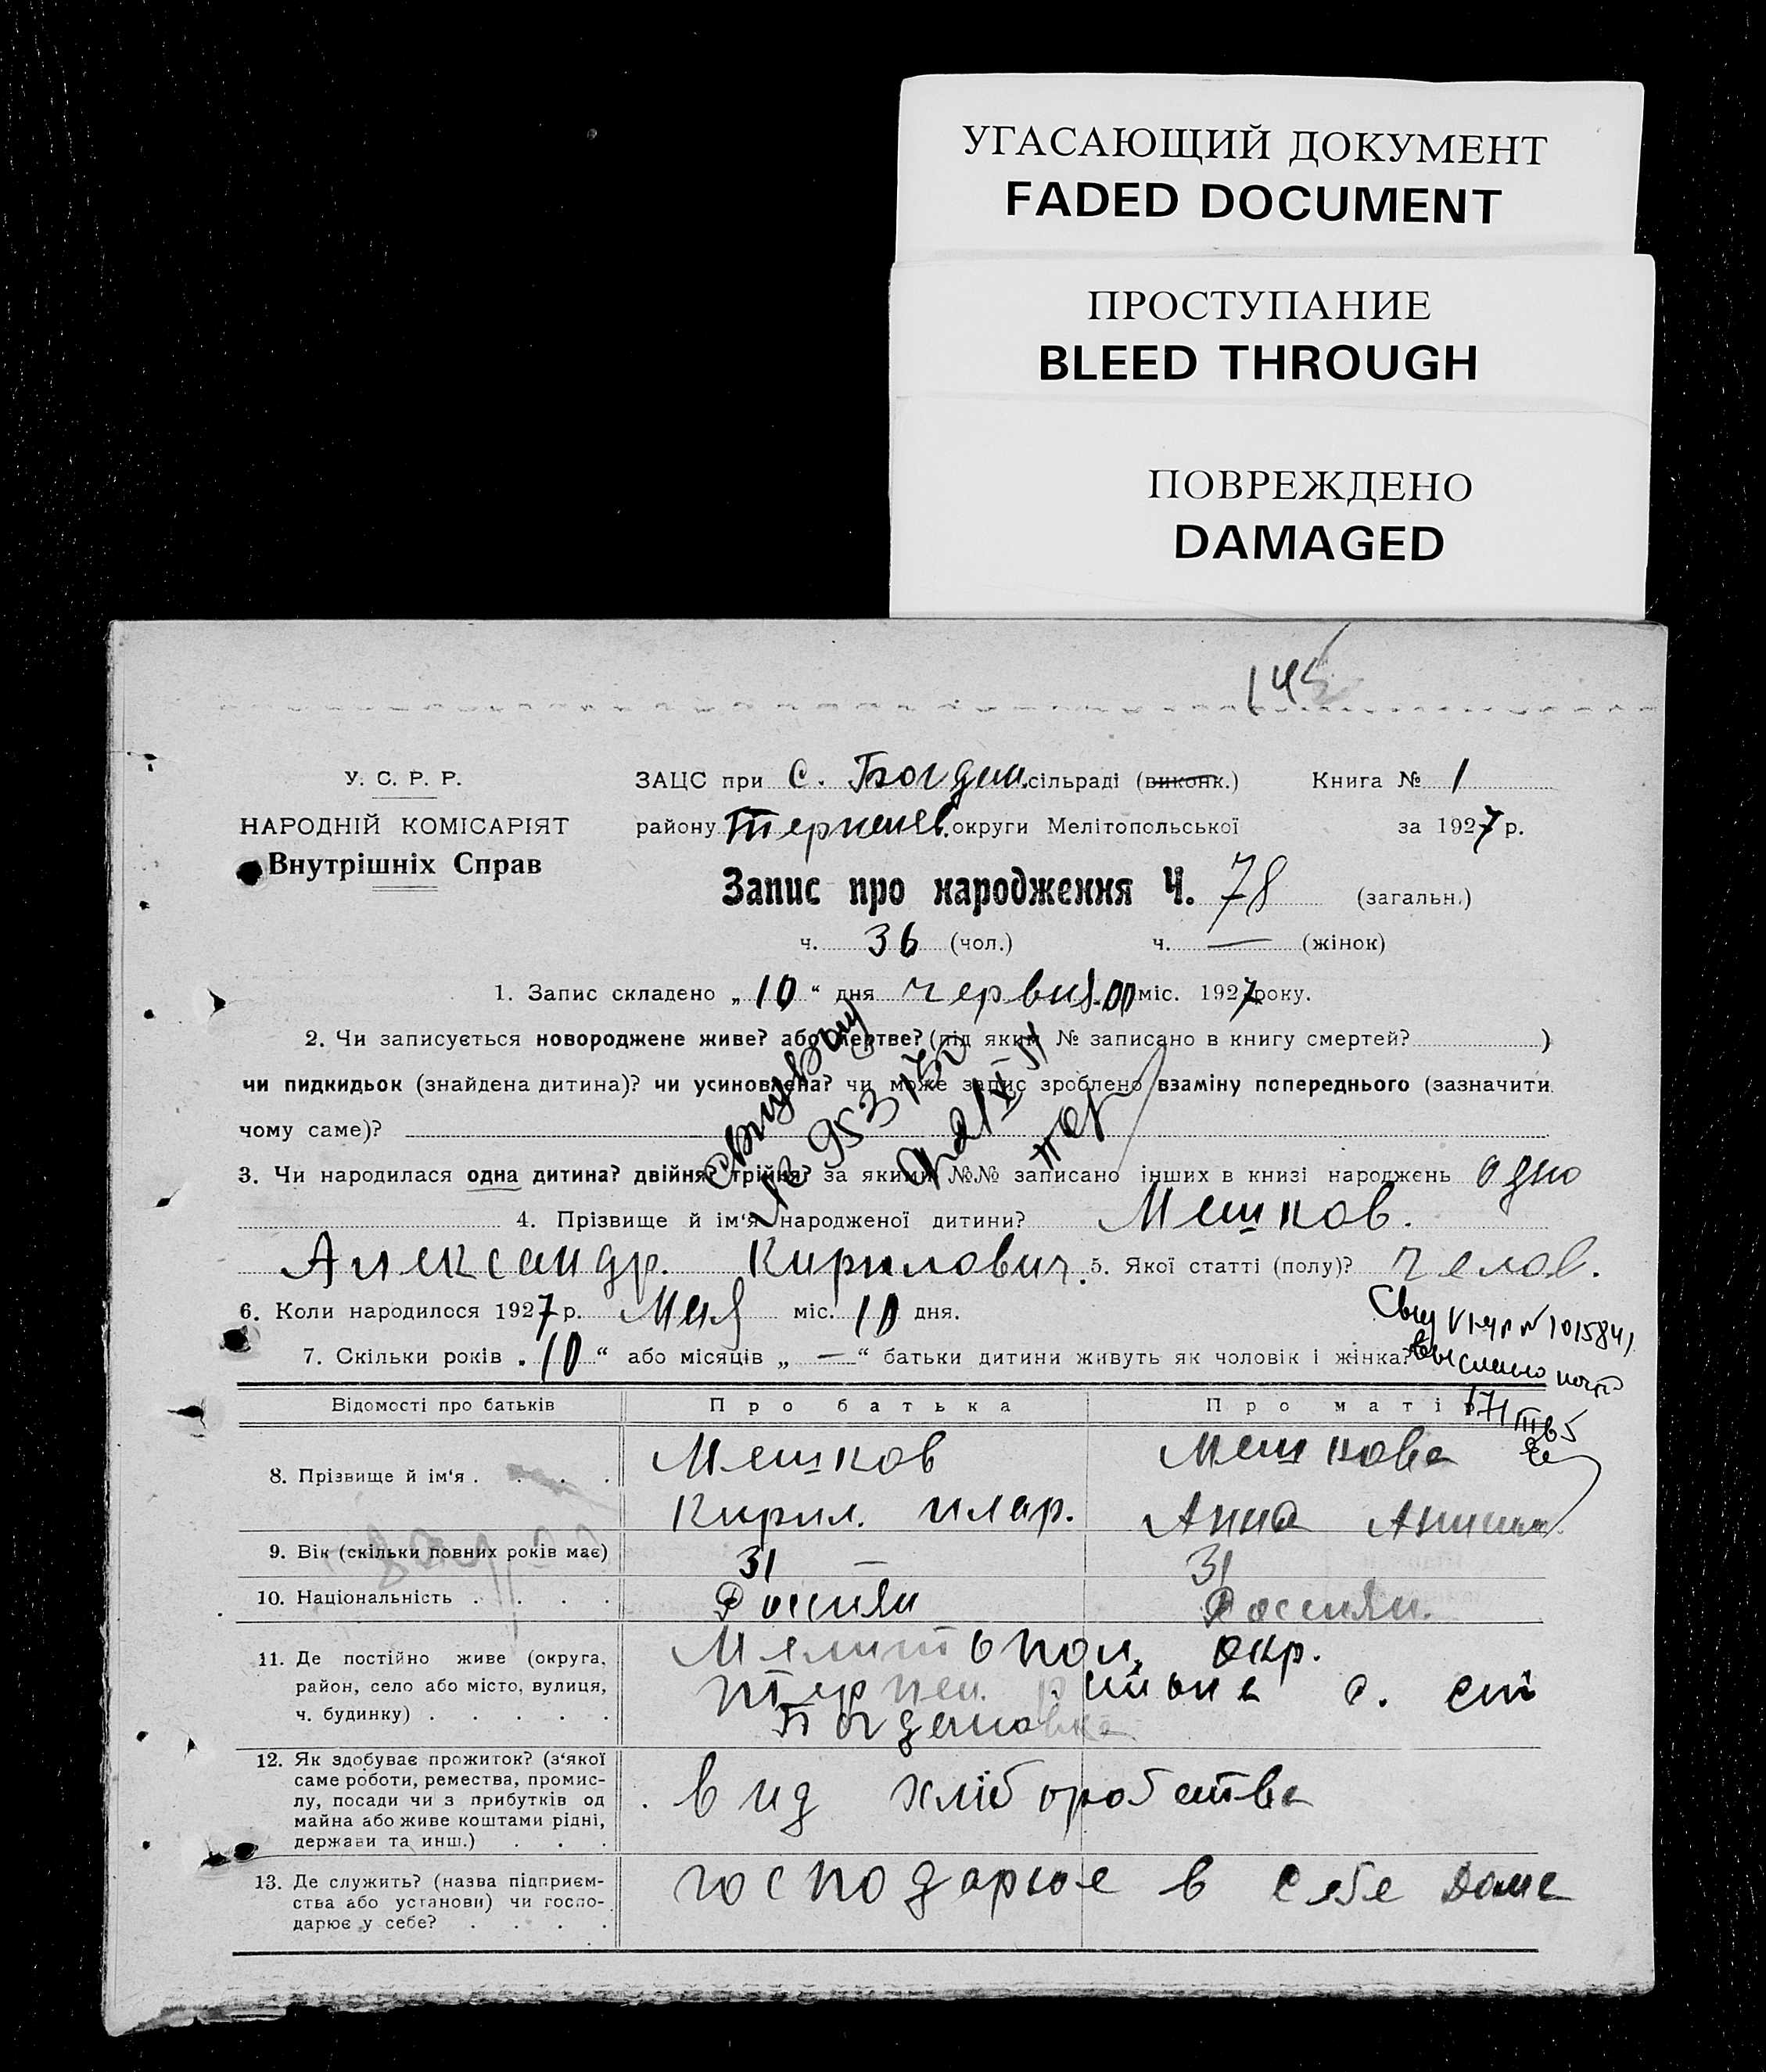 УГАСАЮЩИЙ ДОКУМЕНТ
FADED DOCUMENT
ПРОСТУПАНИЕ
BLEED THROUGH
ПОВРЕЖДЕНО
DAMAGED
145
У. С. Р. Р.
НАРОДНІЙ КОМІСАРІЯТ
Внутрішніх Справ
ЗАЦС при с. Богдан. сільраді (виконк.) Книга № 1
району Терпенев. округи Мелітопольської за 1927 р.
Запис про народження Ч. 78 (загальн.)
ч. 36 (чол.) ч. — (жінок)
1. Запис складено „10“ дня червня міс. 1927 року.
2. Чи записується новороджене живе? або мертве? (під яким № записано в книгу смертей? )
чи пидкидьок (знайдена дитина)? чи усиновлена? чи може запис зроблено взаміну попереднього (зазначити
чому саме)?
3. Чи народилася одна дитина? двійня? трійня? за якими №№ записано інших в книзі народжень одно
4. Прізвище й ім'я народженої дитини? Мешков.
Александр. Кирилович. 5. Якої статті (полу)? челов.
6. Коли народилося 1927 р. Мая міс. 10 дня.
7. Скільки років „10“ або місяців „—“ батьки дитини живуть як чоловік і жінка?
№ 1015841
Відомості про батьків Про батька Про матір
8. Прізвище й ім'я . . . . Мешков Мешкова
Кирил. Илар. Анна
9. Вік (скільки повних років має) 31 — 31
10. Національність . . . . Россиян Россиян.
11. Де постійно живе (округа, район, село або місто, вулиця, ч. будинку) . . . . . Мелитопол. окр.
Терпен. района с.
Богдановка
12. Як здобуває прожиток? (з'якої саме роботи, ремества, промислу, посади чи з прибутків од майна або живе коштами рідні, держави та инш.) . . . вид хліборобства
13. Де служить? (назва підприємства або установи) чи господарює у себе? . . . . господарюе в себе доме